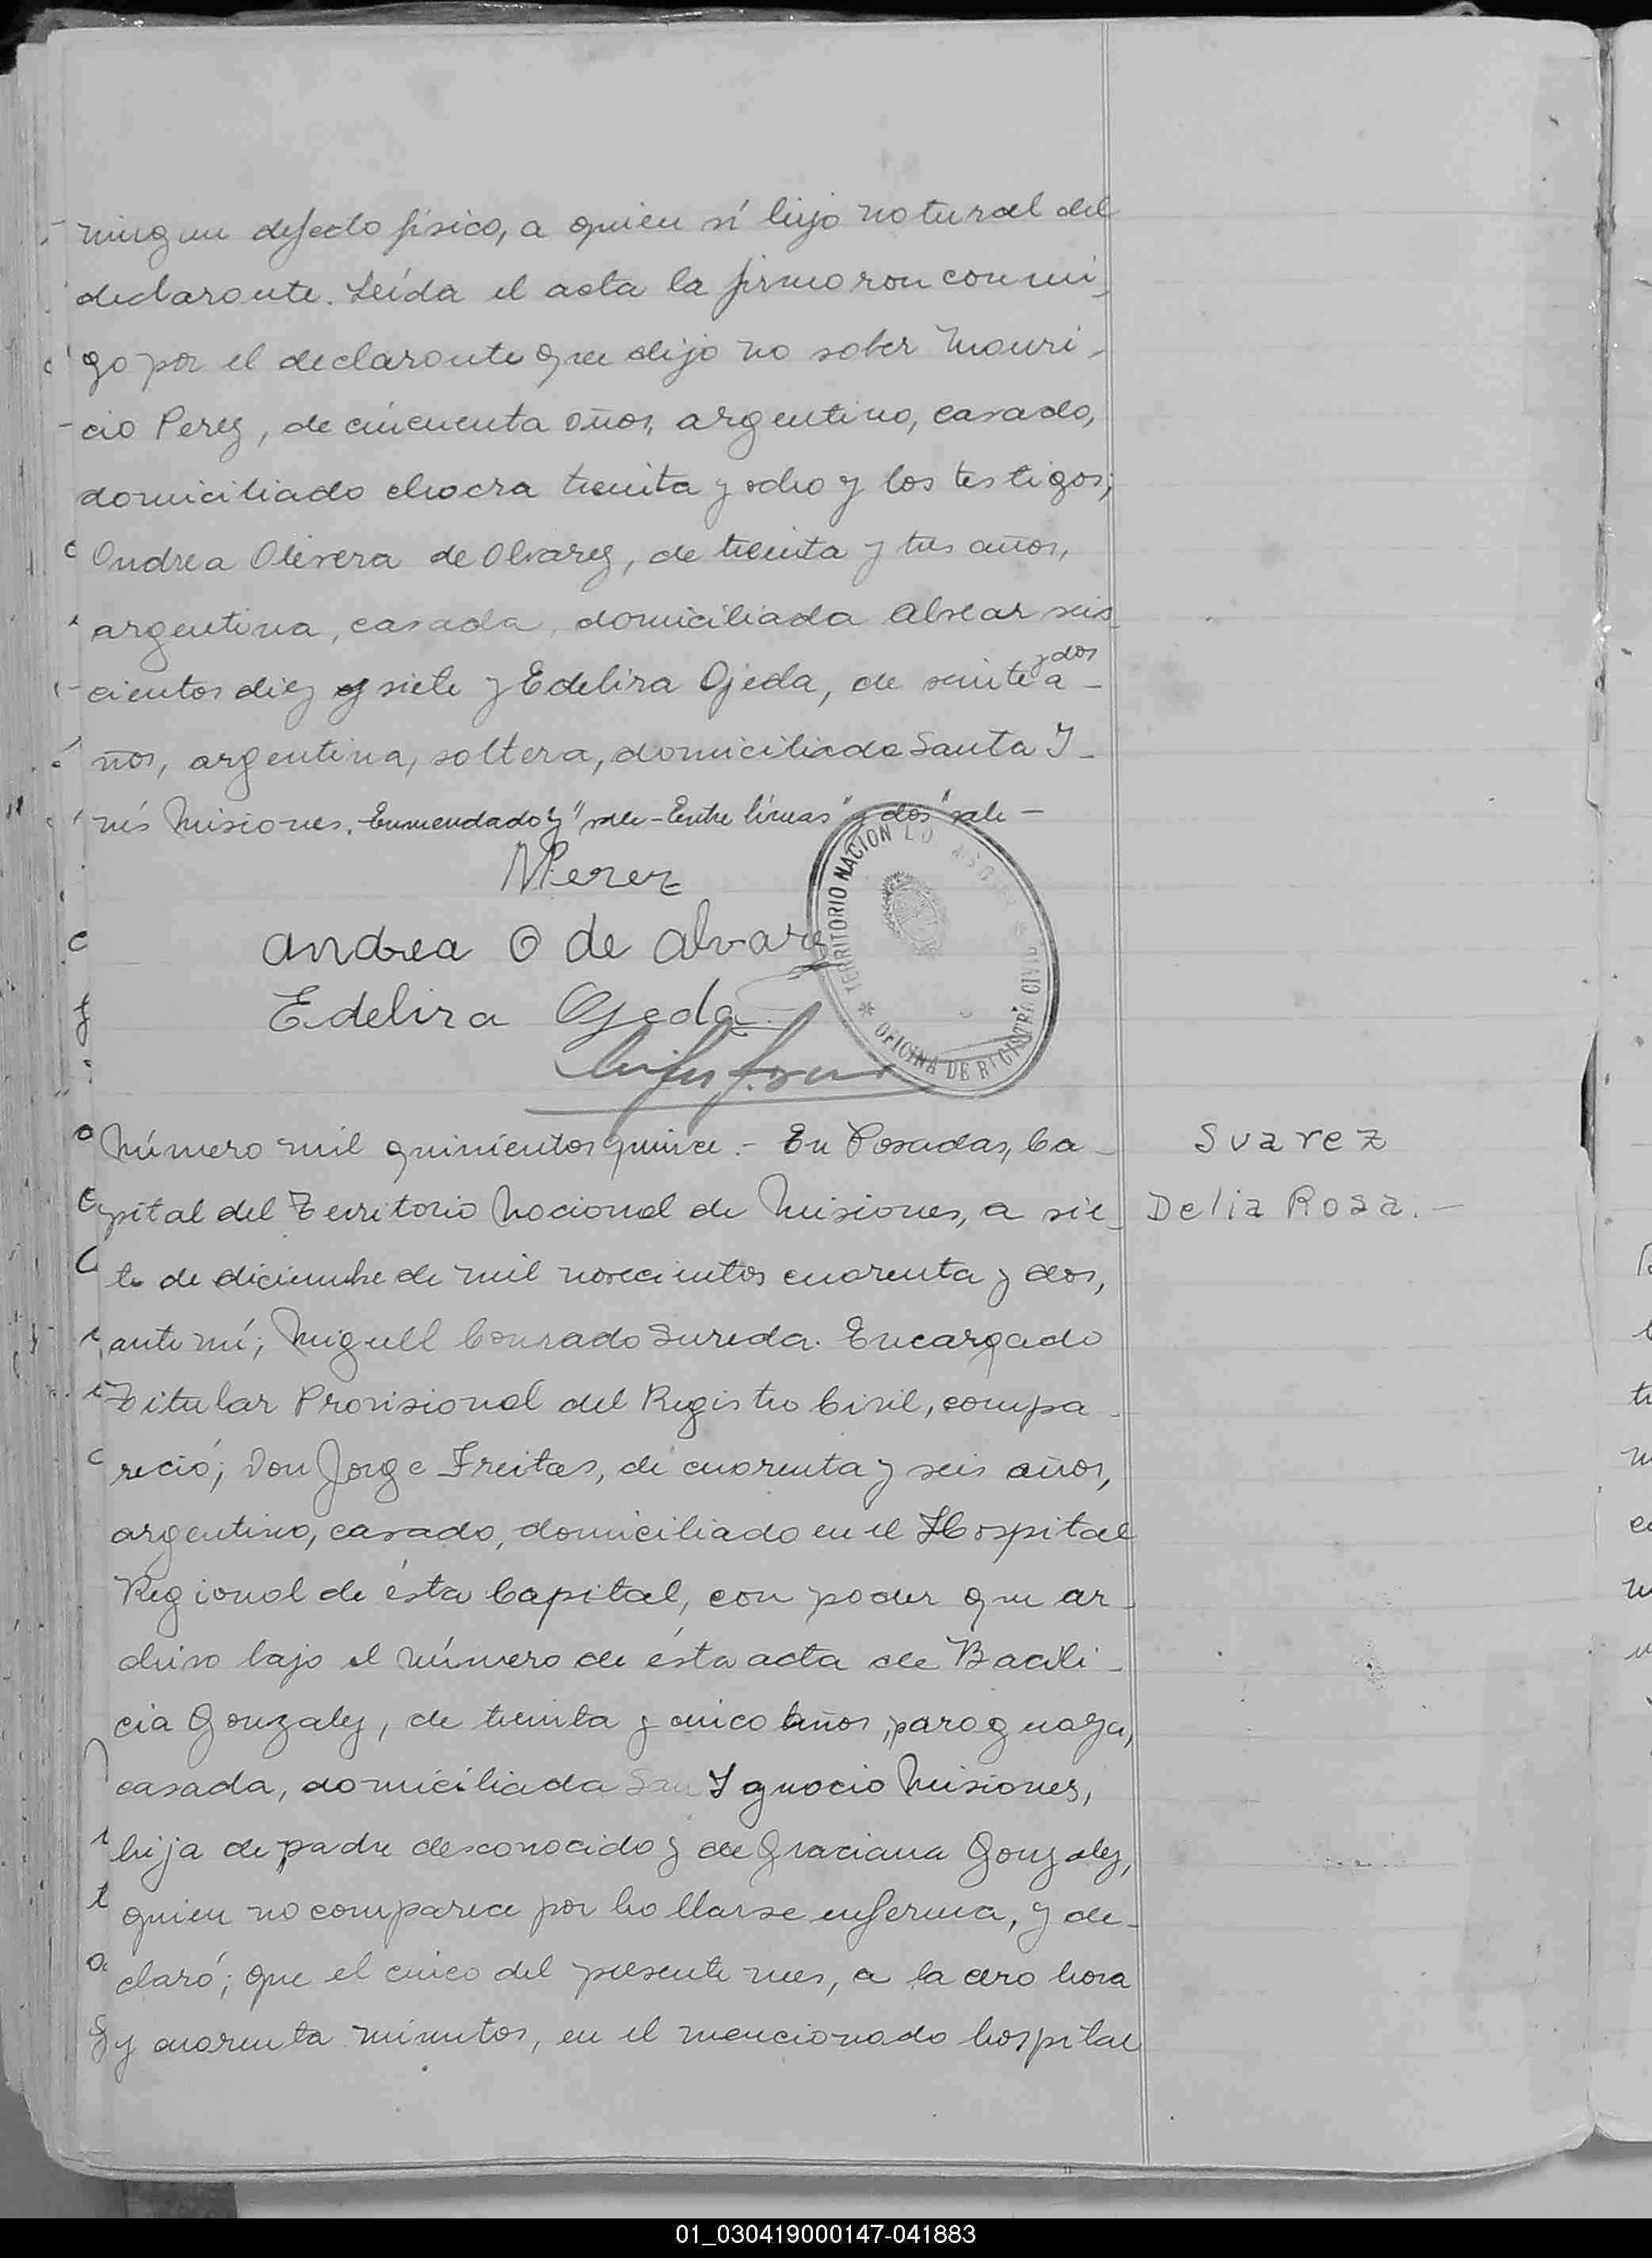 ningun defecto físico, a quien sí hijo natural del
declarante. Leída el acta la firmaron conmi-
go por el declarante que dijo no saber Mauri-
cio Perez, de cincuenta años, argentino, casado,
domiciliado chacra treinta y ocho y los testigos;
Andrea Olivera de Alvarez, de treinta y tres años,
argentina, casada, domiciliada Alvear seis-
cientos diez y siete y Edelira Ojeda, de veinte y dos a-
ños, argentina, soltera, domiciliada Santa I-
nés Misiones. Enmendado "y" vale - Entre líneas "y dos" vale -
MPerez
Andrea O de Alvarez
Edelira Ojeda
TERRITORIO NACION
OFICINA DE REGISTRO CIVIL
Número mil quinientos quince. - En Posadas, Ca-
pital del Territorio Nacional de Misiones, a sie-
te de diciembre de mil novecientos cuarenta y dos,
ante mí; Miguell Conrado Sureda. Encargado
Titular Provisional del Registro Civil, compa-
reció; Don Jorge Freitas, de cuarenta y seis años,
argentino, casado, domiciliado en el Hospital
Regional de ésta Capital, con poder que ar-
chivo bajo el número de ésta acta de Bacili-
cia Gonzalez, de treinta y cinco años, paraguaya,
casada, domiciliada San Ignacio Misiones,
hija de padre desconocido y de Graciana Gonzalez,
quien no comparece por hallarse enferma, y de-
claró; que el cinco del presente mes, a la cero hora
y cuarenta minutos, en el mencionado hospital
Suarez
Delia Rosa. -
01_030419000147-041883